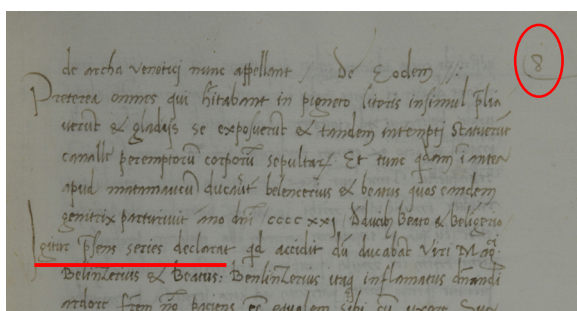 de archa venetici nunc appellant / De Eodem //.
8
Preterea omnes qui hitabant in pigneto litoris insimul plia
uerut & gladijs se exposuerut & tandem intempti statuerut
canalle peremptoru corporu sepultar. Et tunc qdam i mter
apud matamaucu ducaut belencerius & beatus quos eandem
genitrix parturiuit ano dni ccccxxj / Ducib Beato & Beligerio
gitur psens series declarat qd accidit du ducabat Viri Mag
Belinzerius & Beatus: Benlinzerius itaq inflamatus dnandi
ardore frem no paciens ee equalem sibi cu uxore sua